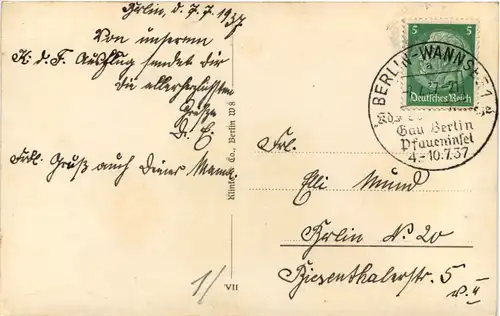 Berlin, d. 7. 7. 1937
Von unserem
K. d. F. Ausflug sendet dir
die allerherzlichsten
Grüße
D. E.
Frdl. Gruß auch Deiner Mama.
Klinke & Co., Berlin W 8
VII
1/
5 5
Deutsches Reich
BERLIN-WANNSEE 1
a
KdF
Gau Berlin
Pfaueninsel
4.-10.7.37
Frl.
Elli Mund
Berlin N. 20
Biesenthalerstr. 5
v. II